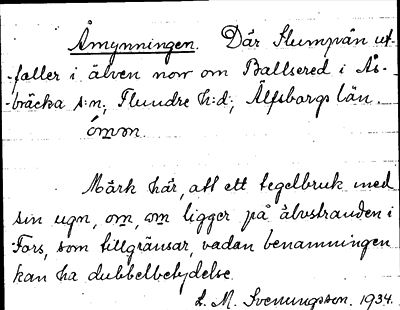 Åmynningen. Där Slumpån ut-
-faller i älven norr om Ballsered i Ås-
-bräcka s:n, Flundre h:d, Älfsborgs län.
Märk här, att ett tegelbruk med
sin ugn, om, om ligger på älvstranden i
Fors, som tillgränsar, vadan benämningen
kan ha dubbelbetydelse.
L. M. Svenungsson. 1934.